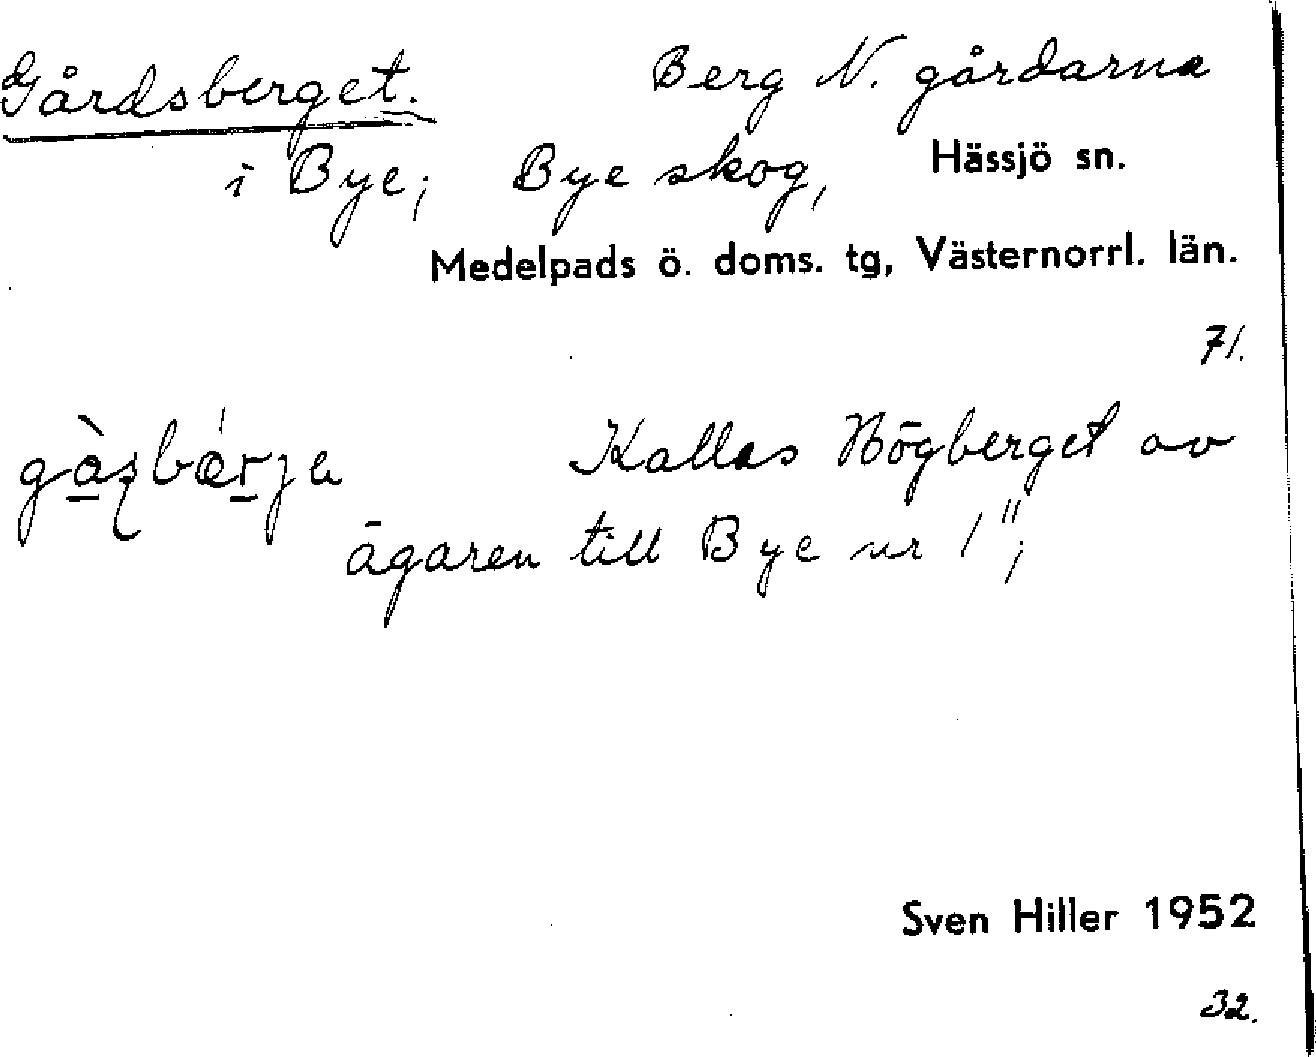 Gårdsberget. Berg N. gårdarna
i Bye; Bye skog, Hässjö sn.
Medelpads ö. doms. tg, Västernorrl. län.
71.
Kallas Högberget av
ägaren till Bye nr 1";
Sven Hiller 1952
32.